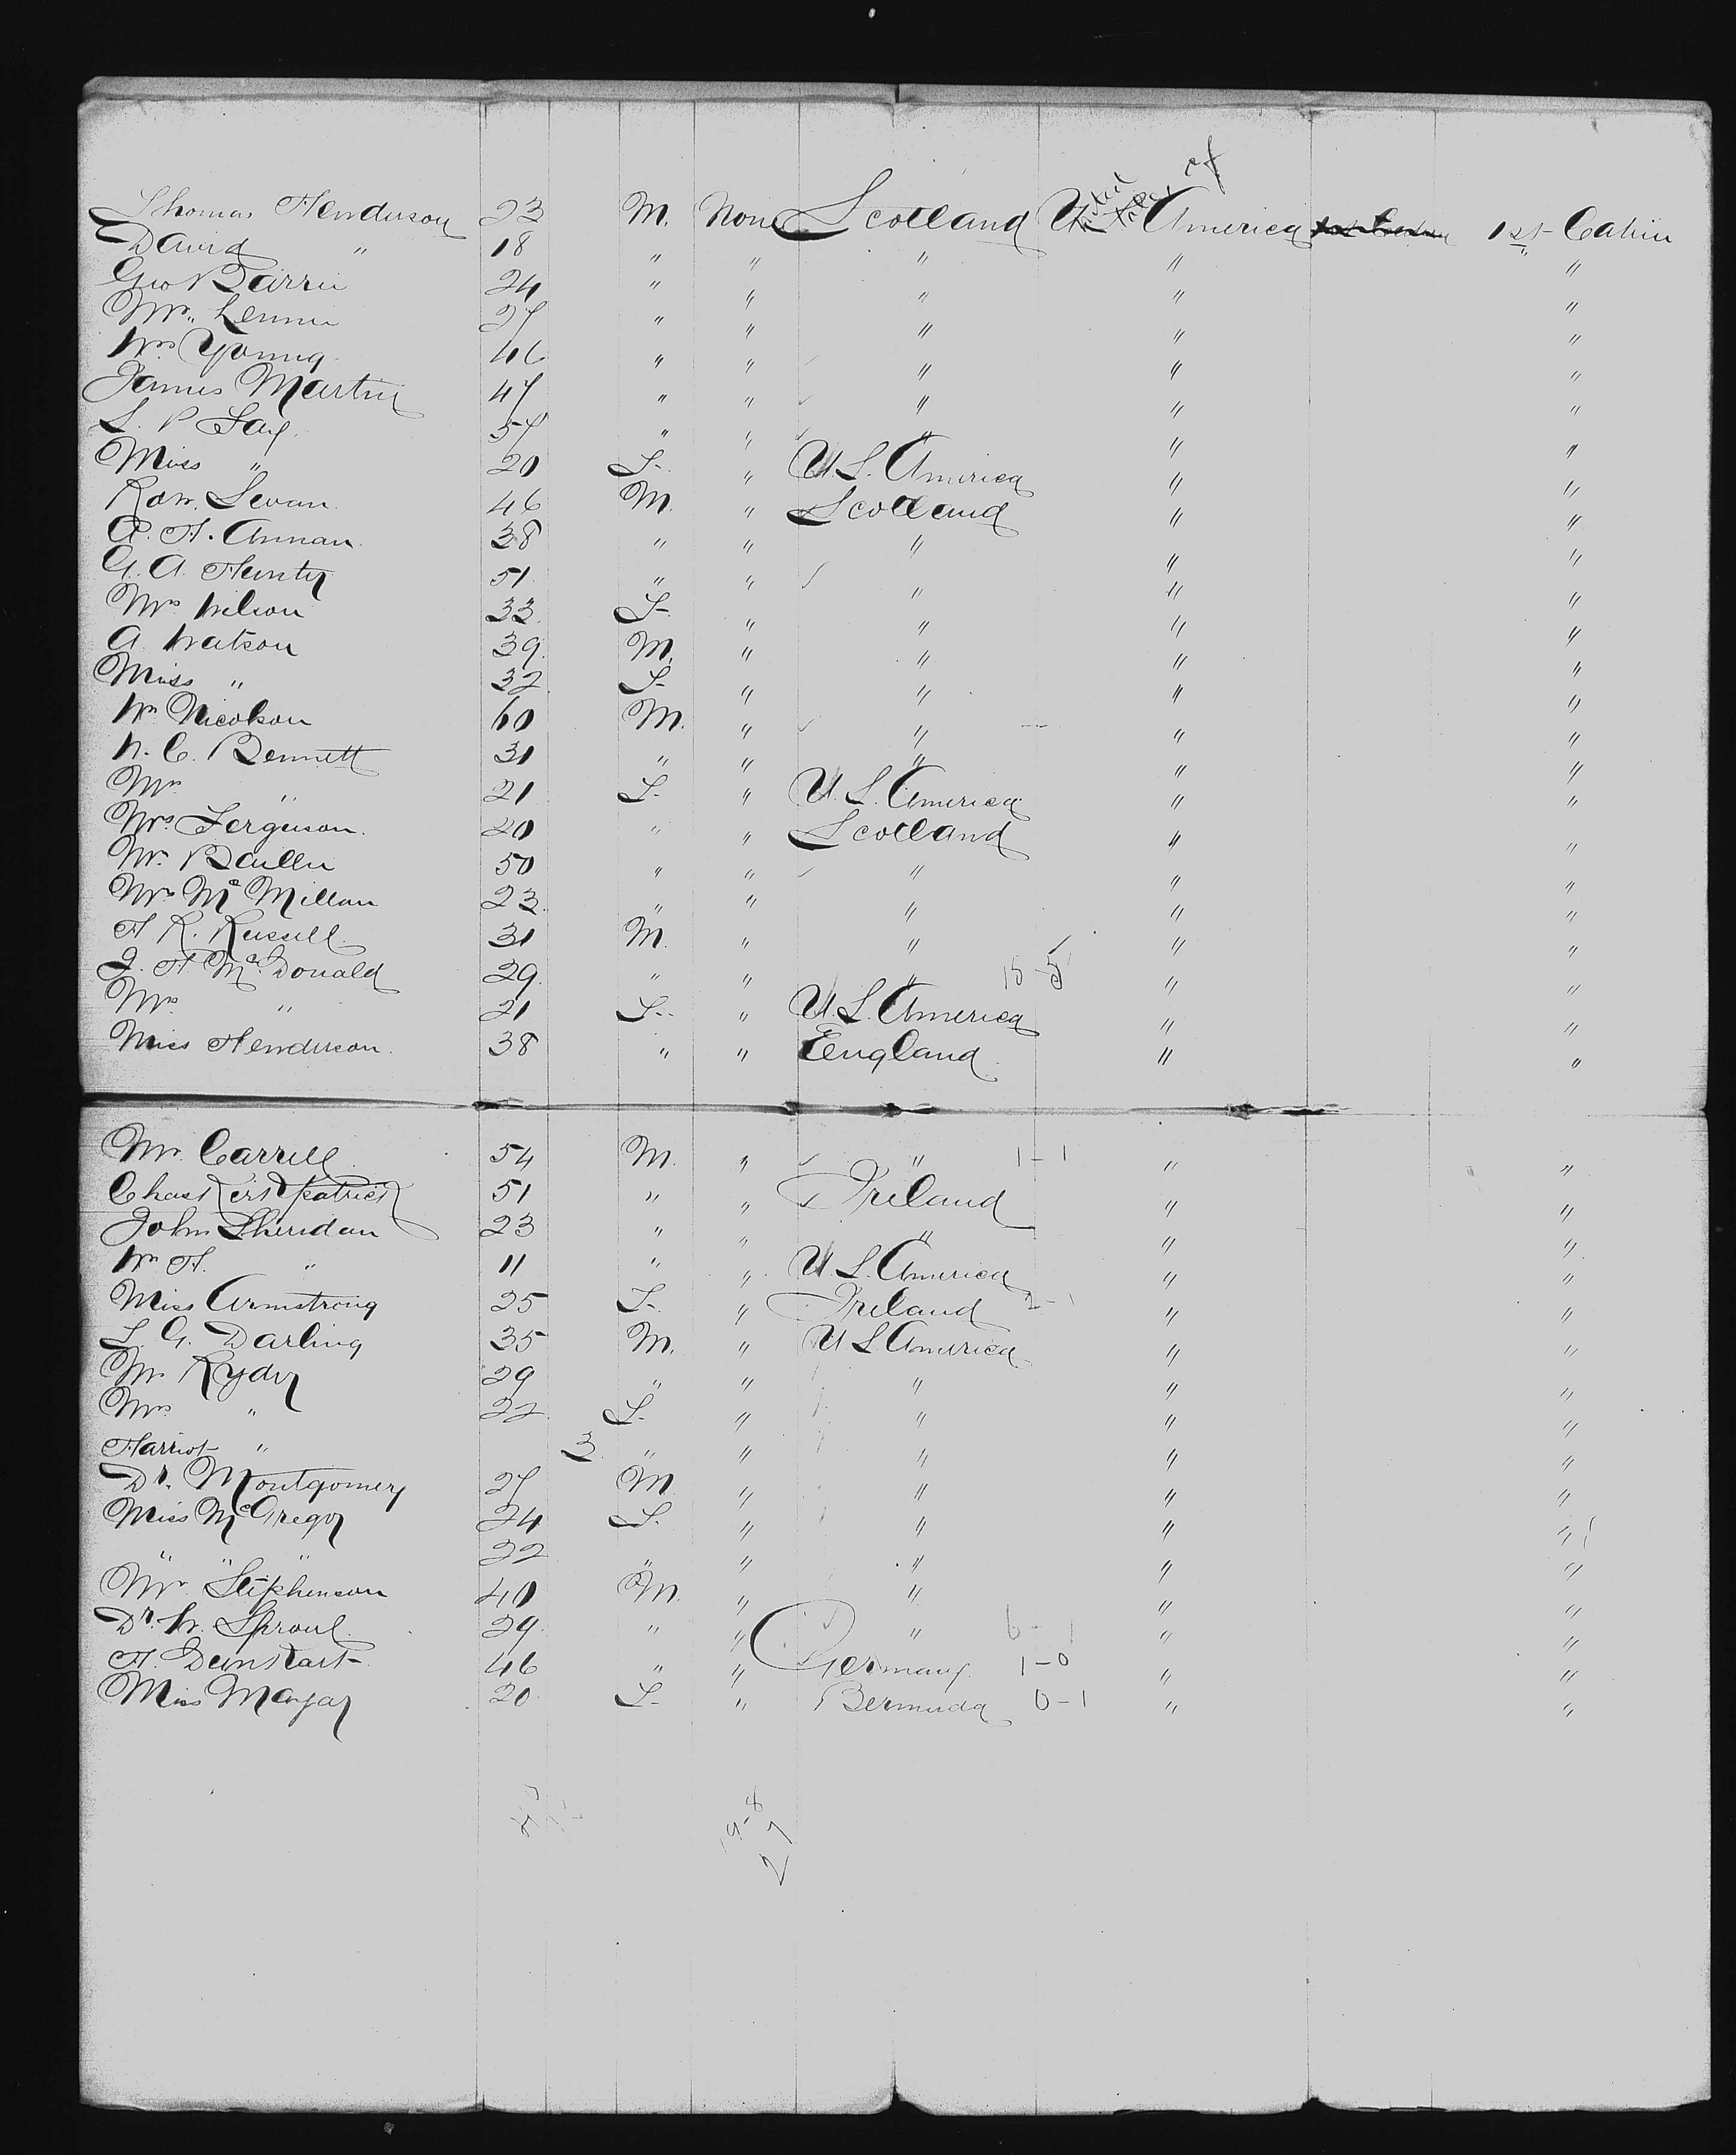 Thomas Henderson 23 M. None Scotland United States of America 1st Cabin
David " 18 " " " " "
Geo Barrie 24 " " " " "
Mr. Lennie 27 " " " " "
Wm Young 46 " " " " "
James Martin 47 " " " " "
S. P Fay 57 " " " " "
Miss " 20 F. " U.S. America " "
Row. Sevan 46 M. " Scotland " "
A. H. Annan 38 " " " " "
G. A. Hunty 51 " " " " "
Mrs Wilson 33 F. " " " "
A. Watson 39 M. " " " "
Miss " 32 F. " " " "
Wm Nicolson 60 M. " " " "
W. C. Bennett 31 " " " " "
Mrs " 21 F. " U.S. America " "
Mrs Ferguson 20 " " Scotland " "
Mr. 50 " " " " "
Mrs Mc Millan 23 " " " " "
H R. Russell 31 M. " " " "
J. H McDonald 29 " " " 15-5 " "
Mrs " 21 F. " U.S. America " "
Miss Henderson 38 " " England " "
Mr. Carrill 54 M. " " 1-1 " "
Chas Kirkpatrick 51 " " Ireland " "
John Sheridan 23 " " " " "
Wm H. " 11 " " U.S. America " "
Miss Armstrong 25 F. " Ireland 2-1 " "
L. G. Darling 35 M. " U S America " "
Mr Ryder 29 " " " " "
Mrs " 22 F. " " " "
Harriot " 3 " " " " "
Dr. Montgomery 27 M " " " "
Miss McGregor 24 F. " " " "
" " " 22 " " " " "
Mr Stephenson 40 M. " " " "
Dr. W. Sproul 29 " " " 6-1 " "
H. 46 " " Germany 1-0 " "
Miss 20 F. " Bermuda 0-1 " "
19-8
27